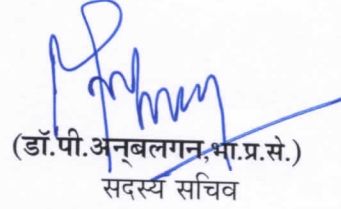 (डॉ.पी.अन्बलगन,भा.प्र.से.)
सदस्य सचिव